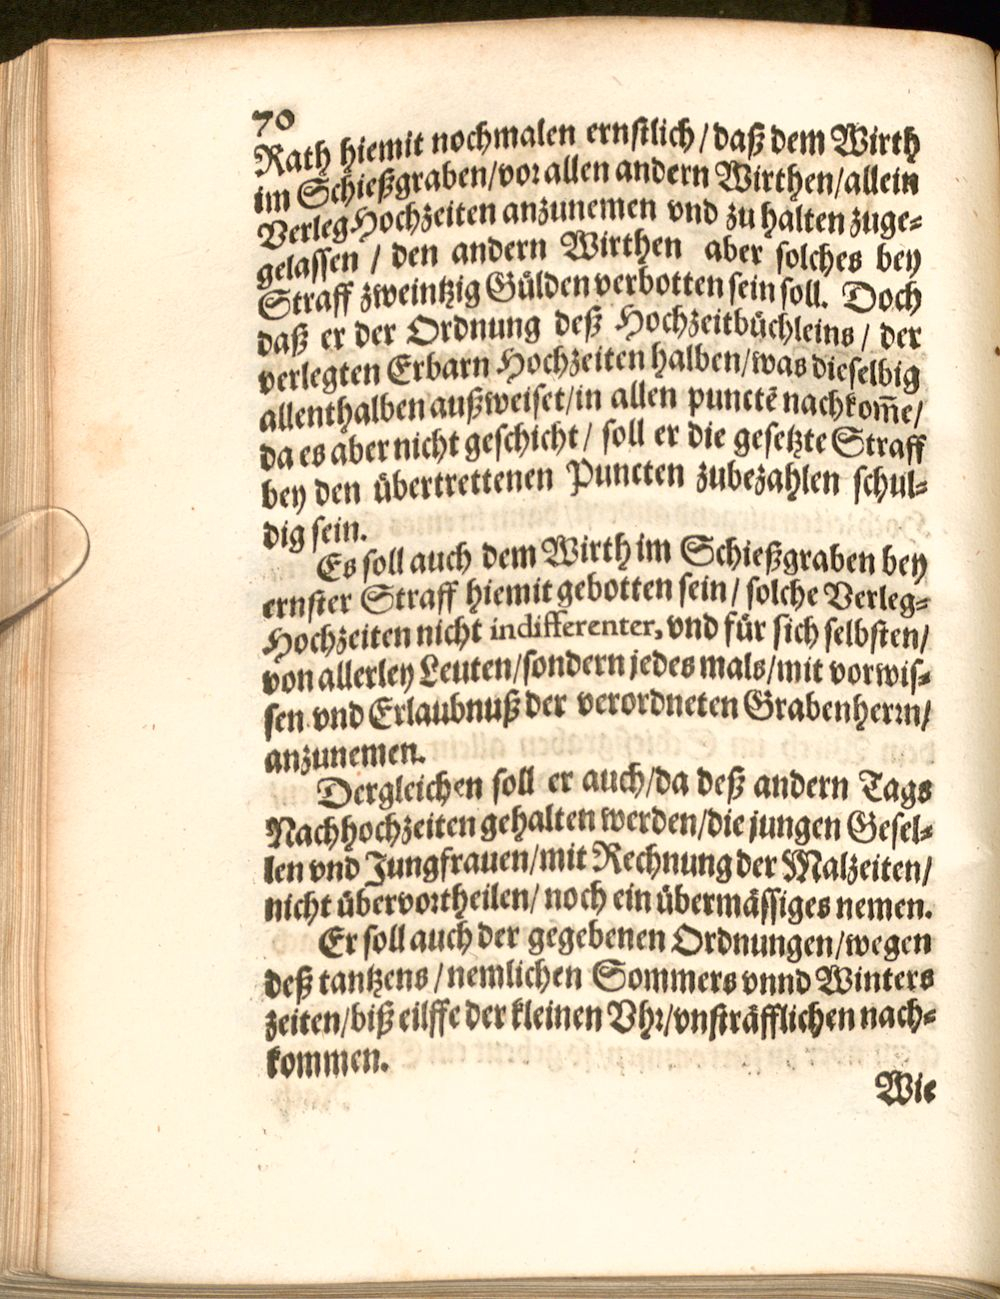 70
Rath hiemit nochmalen ernstlich / daß dem Wirth
im Schießgraben / vor allen andern Wirthen / allein
Verleg Hochzeiten anzunemen vnd zu halten zuge⸗
gelassen / den andern Wirthen aber solches bey
Straff zweintzig Gülden verbotten sein soll. Doch
daß er der Ordnung deß Hochzeitbüchleins / der
verlegten Erbarn Hochzeiten halben / was dieselbig
allenthalben außweiset / in allen punctẽ nachkom̃e /
da es aber nicht geschicht / soll er die gesetzte Straff
bey den übertrettenen Puncten zubezahlen schul⸗
dig sein.
Es soll auch dem Wirth im Schießgraben bey
ernster Straff hiemit gebotten sein / solche Verleg⸗
Hochzeiten nicht indifferenter, vnd für sich selbsten /
von allerley Leuten / sondern jedes mals / mit vorwis⸗
sen vnd Erlaubnuß der verordneten Grabenherrn /
anzunemen.
Dergleichen soll er auch / da deß andern Tags
Nachhochzeiten gehalten werden / die jungen Gesel⸗
len vnd Jungfrauen / mit Rechnung der Malzeiten /
nicht übervortheilen / noch ein übermässiges nemen.
Er soll auch der gegebenen Ordnungen / wegen
deß tantzens / nemlichen Sommers vnnd Winters
zeiten / biß eilffe der kleinen Vhr / vnsträfflichen nach⸗
kommen.
Wie